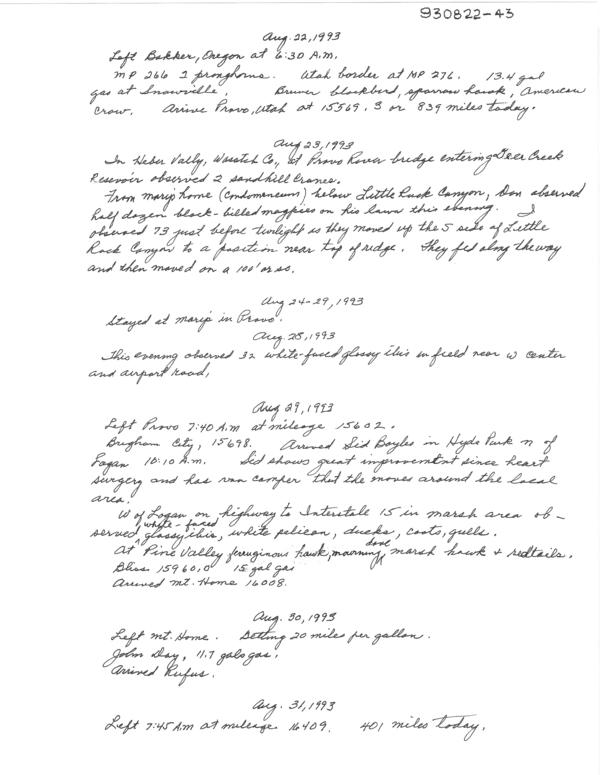 930822-43
Aug. 22, 1993
Left Bakker, Oregon at 6:30 A.m.
MP 266 2 pronghorns. Utah border at MP 276. 13.4 gal
gas at Snowville. Brewer blackbird, sparrow hawk, American
Crow. Arrive Provo, Utah at 15569.3 or 839 miles today.
Aug 23, 1993
In Heber Vally, Wasatch Co., at Provo River bridge entering Deer Creek
Resevoir observed 2 sandhill cranes.
From marip home (Condomeneum) below Little Rock Canyon, Don observed
half dozen black-billed magpies on his lawn this evening. I
observed 73 just before twilight as they moved up the S side of Little
Rock Canyon to a position near top of ridge. They fed along the way
and then moved on a 100' or so.
Aug 24-29, 1993
Stayed at marip in Provo.
Aug. 28, 1993
This evening observed 32 white-faced glossy ibis in field near W Center
and airport road,
Aug 29, 1993
Left Provo 7:40 A.m at mileage 15602.
Brigham City, 15698. Arrived Sid Boyles in Hyde Park n of
Logan 10:10 A.m. Sid shows great improvement since heart
surgery and has van camper that the moves around the local
area.
W of Logan on highway to Interstate 15 in marsh area ob-
served white-faced glossy ibis, white pelican, ducks, coots, gulls.
At Pine Valley ferruginous hawk, mourning dove, marsh hawk + redtails.
Bliss 15960.0 15 gal gas
Arrived Mt. Home 16008.
Aug. 30, 1993
Left Mt. Home. Getting 20 miles per gallon.
John Day, 11.7 gals gas.
Arrived Rufus.
Aug. 31, 1993
Left 7:45 Am at mileage 16409. 401 miles today.